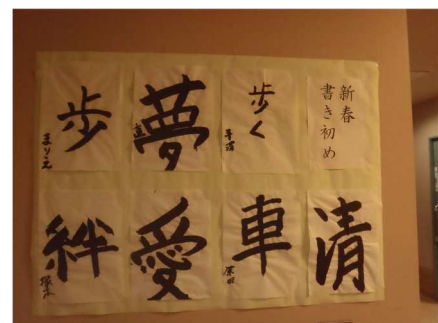 新春
書き初め
歩く
夢
歩
まりえ
清
車
原田
愛
絆